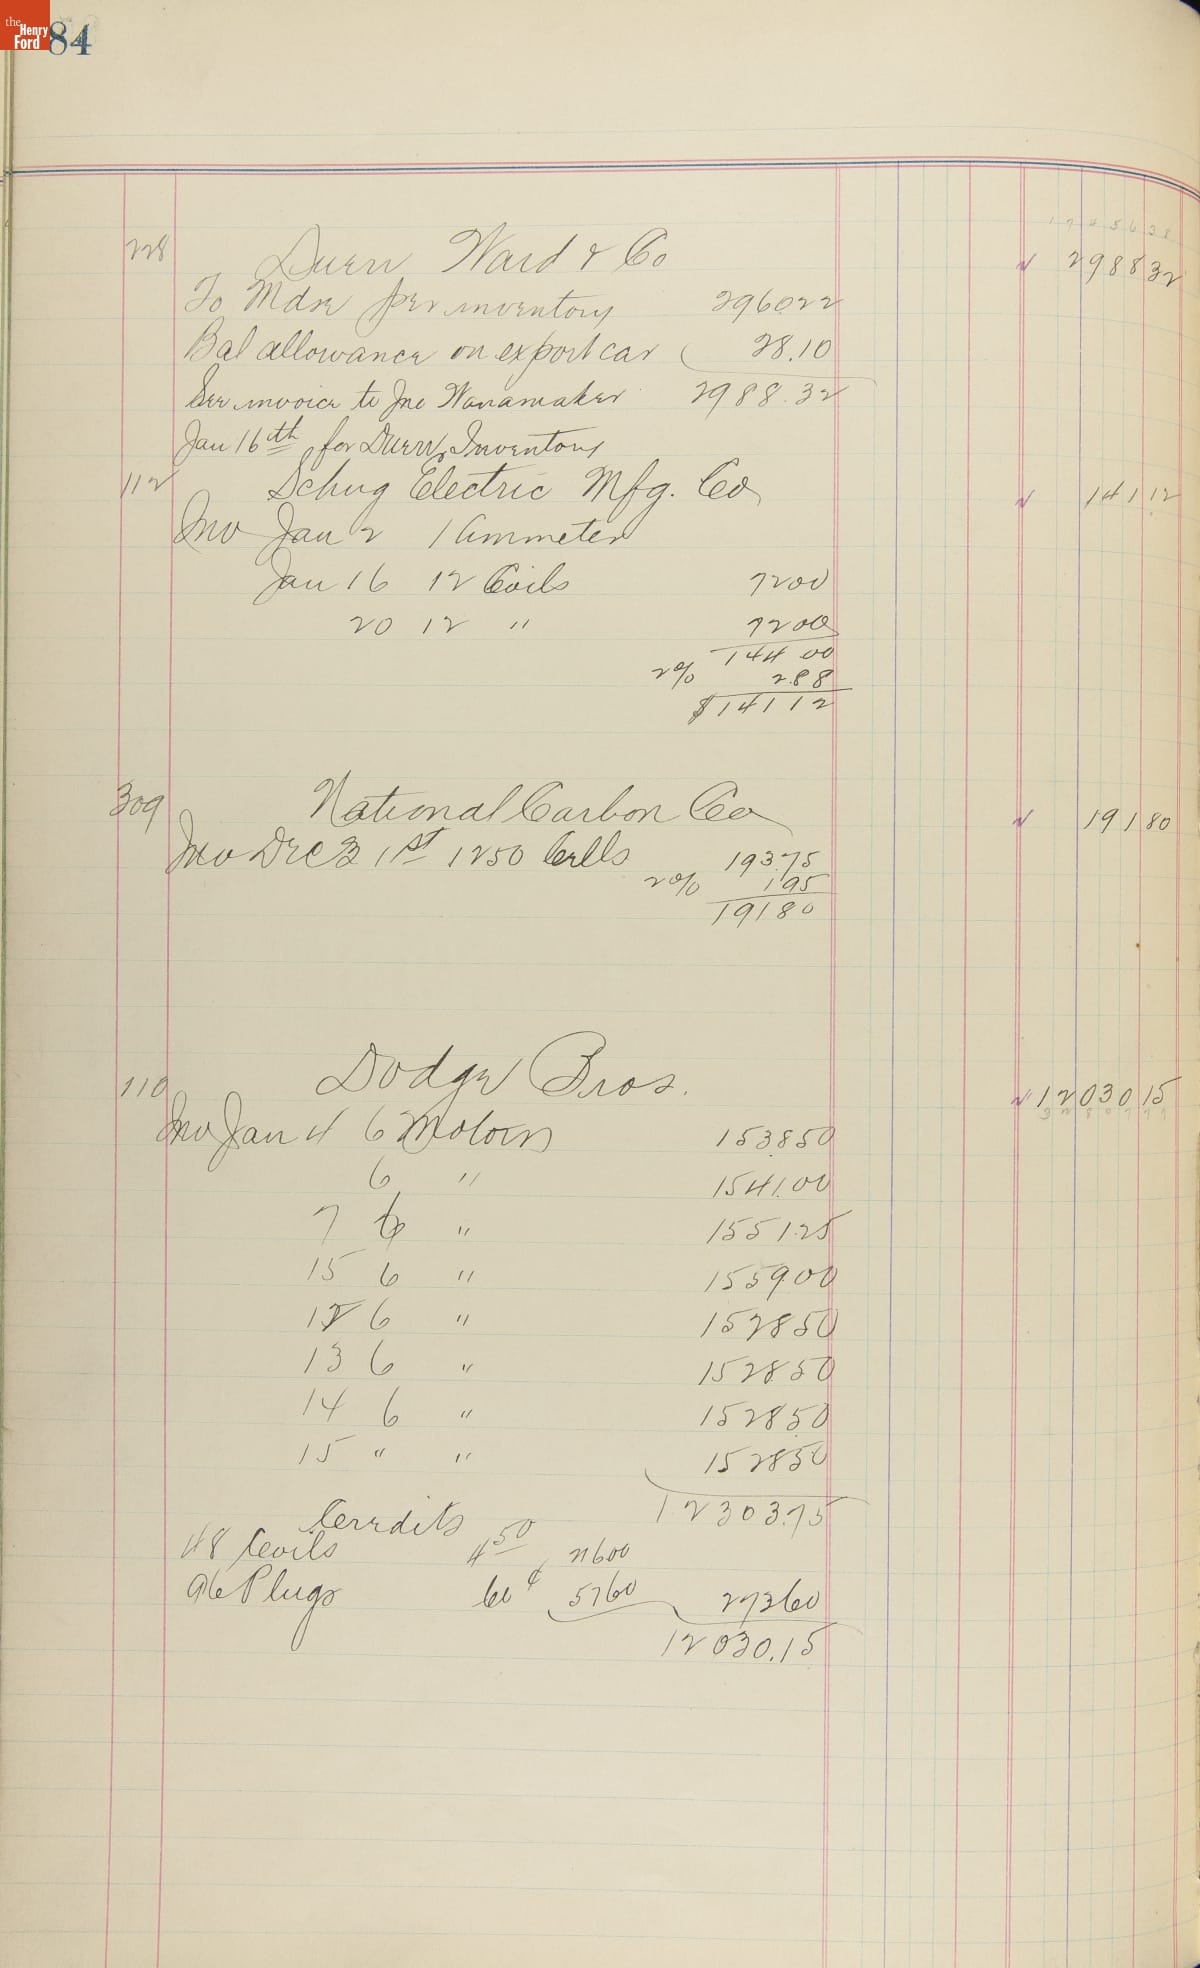 the Henry Ford
84
1 7 4 5 6 3 8
228 Duerr Ward & Co 298832
To Mdse per inventory 296022
Bal allowance on export car 28.10
See invoice to Jno Wanamaker 2988.32
Jan 16th for Duerr Inventory
112 Schug Electric Mfg. Co 14112
Inv Jan 2 1 Ammeter
Jan 16 12 Coils 7200
20 12 " 7200
144 00
2% 2.88
$14112
309 National Carbon Co 19180
Inv Dec 31st 1250 Cells 193.75
2% 195
19180
110 Dodge Bros. 1203015
Inv Jan 4 6 Motors 1538.50
6 " 1541.00
7 6 " 1551.25
15 6 " 155900
12 6 " 152850
13 6 " 152850
14 6 " 152850
15 " " 152850
12303.75
Credits
48 Coils 4 50 21600
96 Plugs 60¢ 5760 27360
12030.15